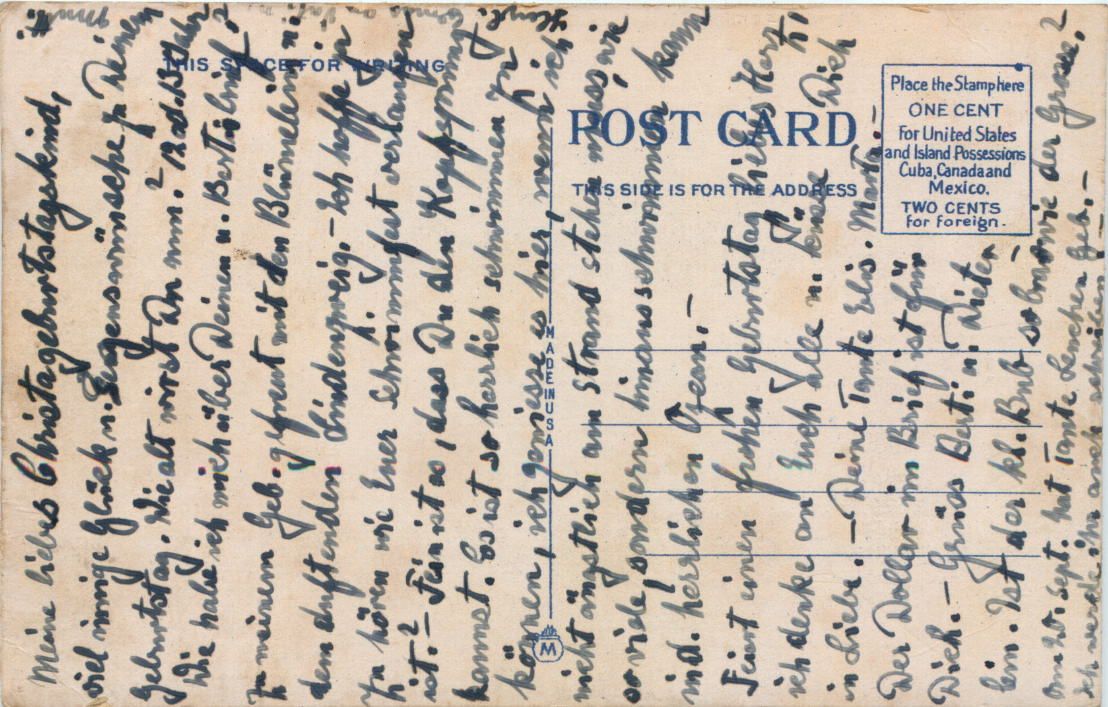 Meine liebes Christageburtstagskind,
viel innige Glück u. Segenswünsche zu Deinem
Geburtstag. Wie alt wirst Du nun? 12 od. 13 Jahr?
Wie habe ich mich über Deinen u. Bertis Brief
zu meinem Geb. gefreut mit den Blümelein u.
dem duftenden Lindenzweig. - Ich hoffe
zu hören wie Euer Schwimmfest verlaufen
ist? - Fein ist es, dass Du den Kopfsprung
kannst. Es ist so herrlich schwimmen zu
können, ich geniesse es hier, wenn ich
nicht ängstlich am Strand stehen muss, wie
so viele, sondern hinausschwimmen kann
in d. herrlichen Ozean. -
Feiert einen frohen Geburtstag liebes Herz,
ich denke an Euch Alle u. küsse Dich
in Liebe. - Deine Tante Elis. Martha. -
Der Dollar im Brief ist für
Dich. - Grüss Berti u. Dieter
Ist der kl. Bub so lb. wie der Grosse?
Am 24. Sept. hat Tante Lenchen Geb. -
Ich werde ihr auch schreiben
THIS SPACE FOR WRITING
POST CARD
THIS SIDE IS FOR THE ADDRESS
MADE IN USA
M
Place the Stamp here
ONE CENT
For United States
and Island Possessions
Cuba, Canada and
Mexico.
TWO CENTS
for foreign.